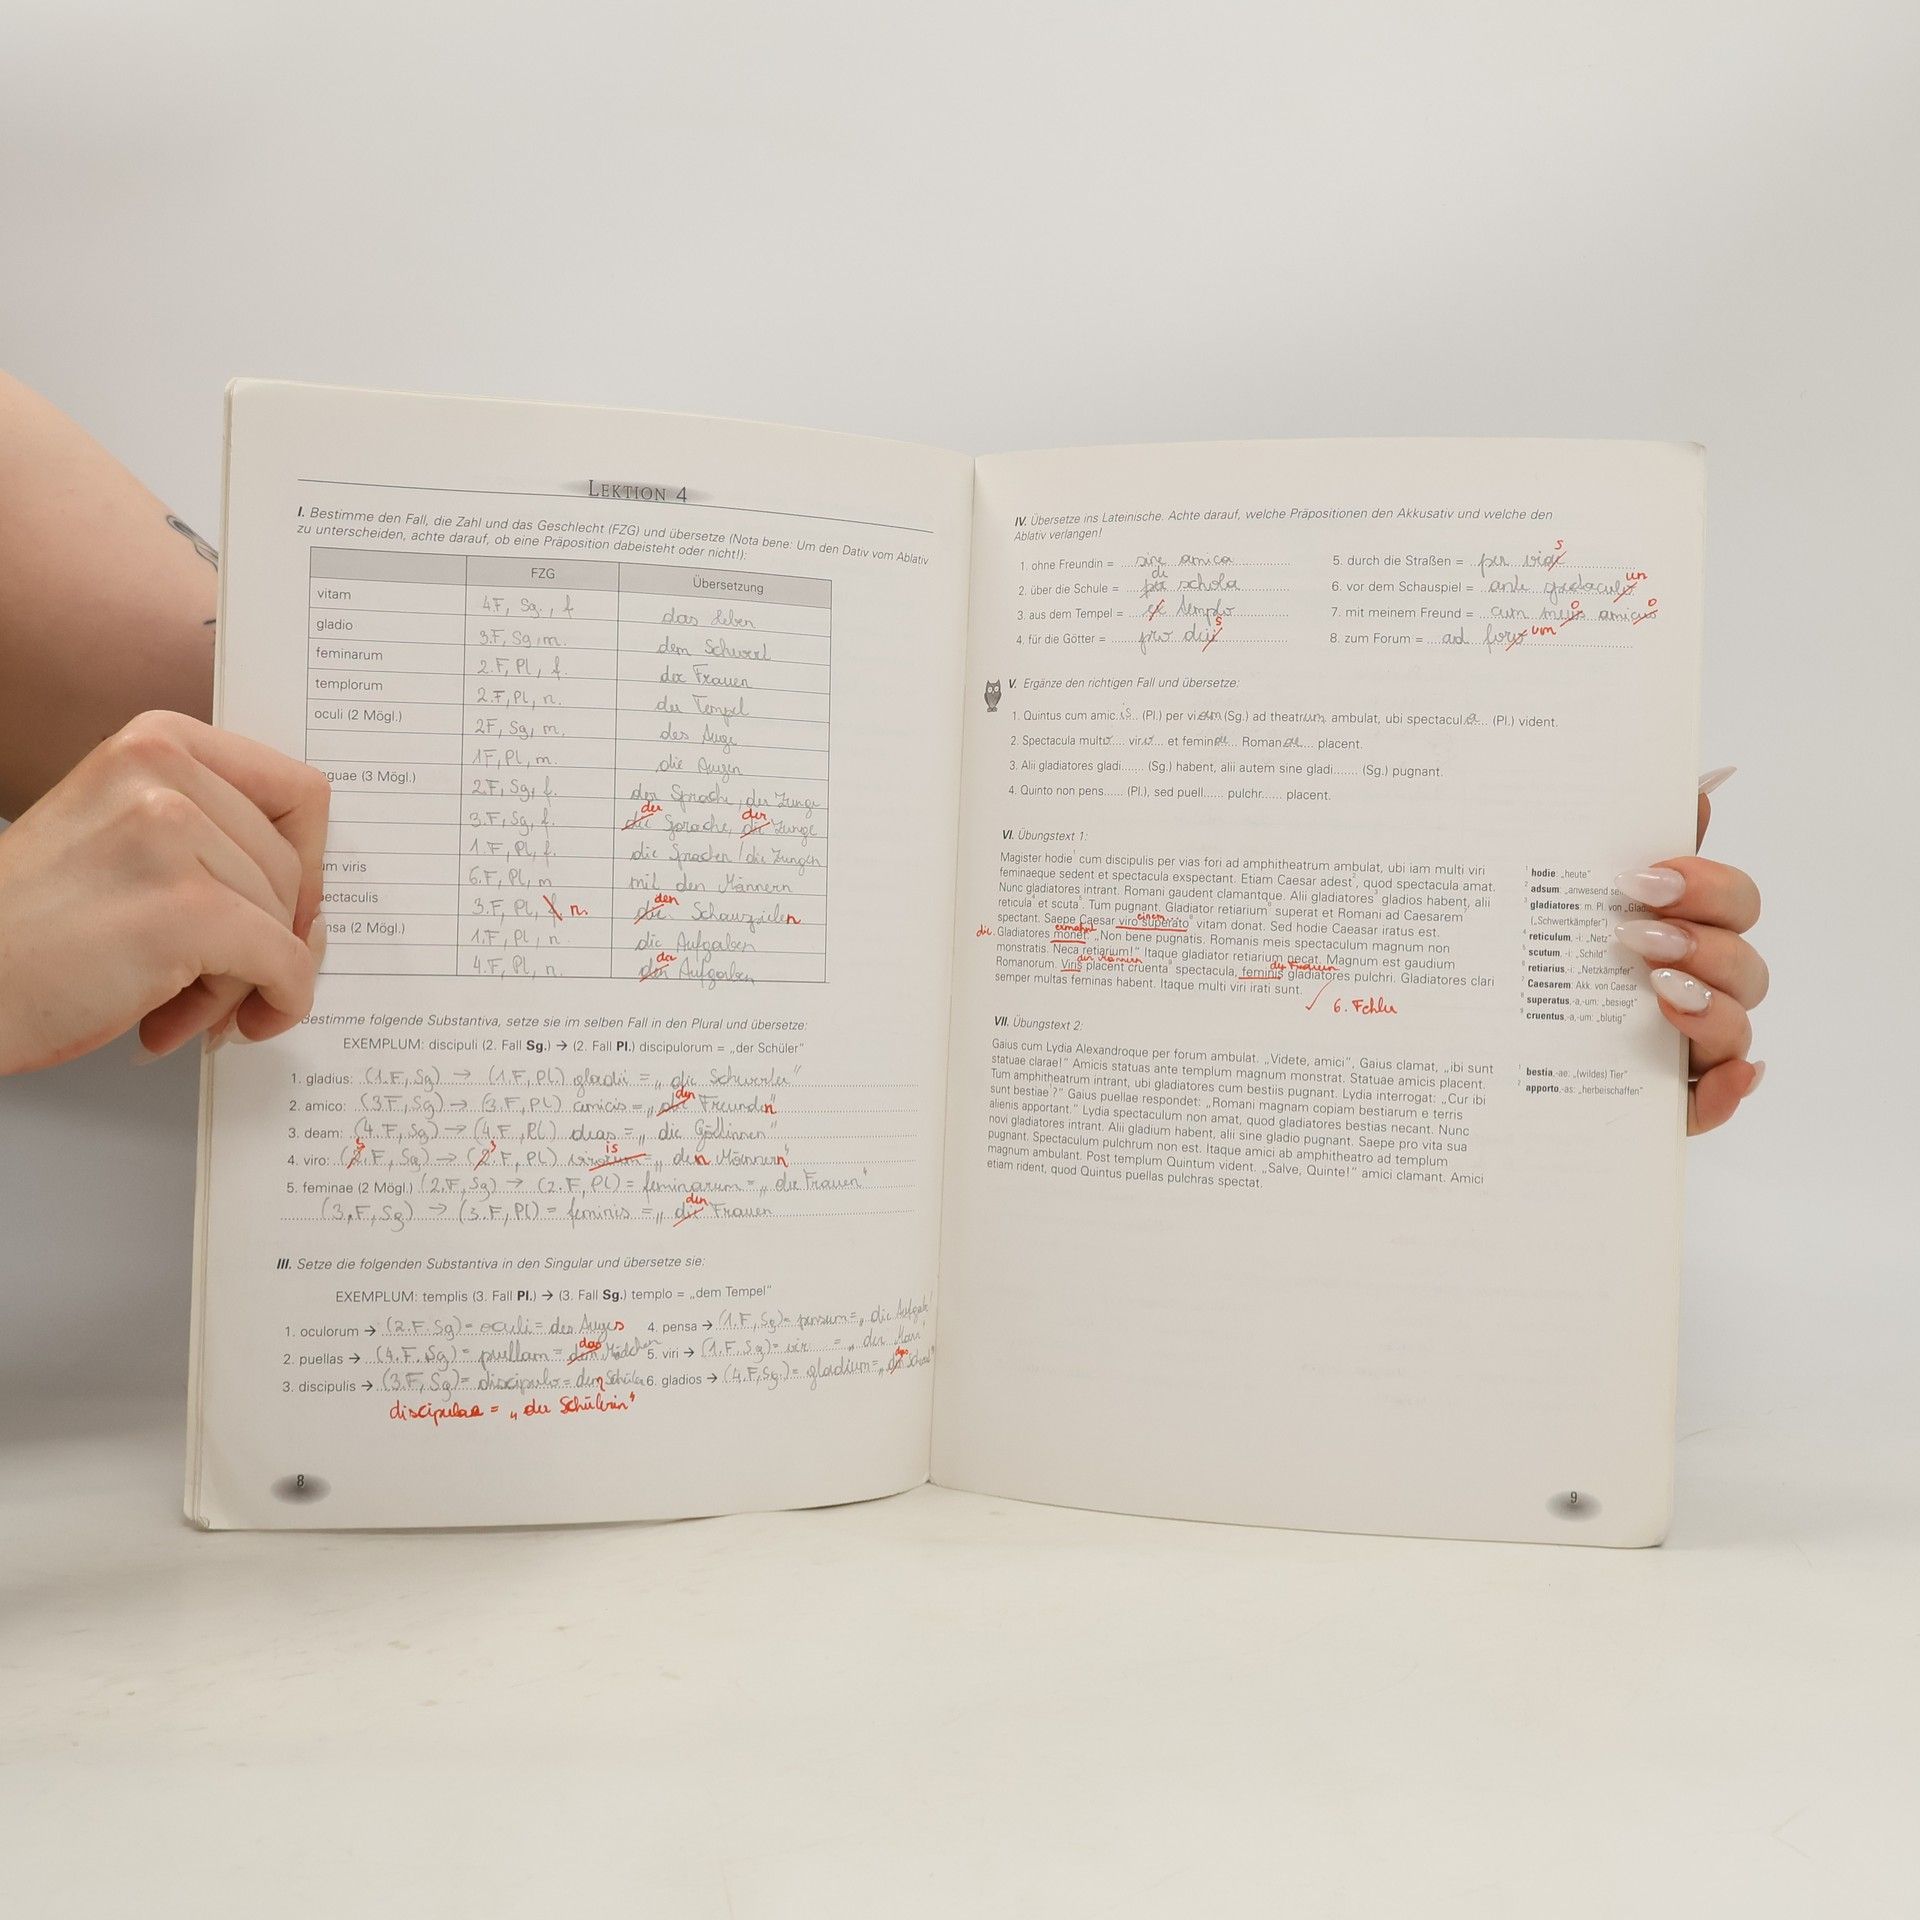 LEKTION 4
I. Bestimme den Fall, die Zahl und das Geschlecht (FZG) und übersetze (Nota bene: Um den Dativ vom Ablativ
zu unterscheiden, achte darauf, ob eine Präposition dabeisteht oder nicht!):
FZG Übersetzung
vitam 4F, Sg., f das Leben
gladio 3.F, Sg, m. dem Schwert
feminarum 2.F, Pl, f. der Frauen
templorum 2.F, Pl, n. der Tempel
oculi (2 Mögl.) 2F, Sg, m. des Auge
1F, Pl, m. die Augen
nguae (3 Mögl.) 2.F, Sg, f. der Sprache, der Zunge
der der
3.F, Sg, f. die Sprache, die Zunge
1.F, Pl, f. die Sprachen / die Zungen
um viris 6.F, Pl, m mit den Männern
den
ectaculis 3.F, Pl, f n. die Schauspielen
nsa (2 Mögl.) 1.F, Pl, n. die Aufgaben
4.F, Pl, n. Aufgaben
Bestimme folgende Substantiva, setze sie im selben Fall in den Plural und übersetze:
EXEMPLUM: discipuli (2. Fall Sg.) → (2. Fall Pl.) discipulorum = „der Schüler"
1. gladius: (1.F, Sg) → (1.F, Pl.) gladii = „die Schwerter"
den
2. amico: (3F, Sg) → (3.F, Pl) amicis = „die Freunden"
3. deam: (4.F, Sg) → (4.F, Pl) deas = „die Göttinnen"
3 3 is
4. viro: (2.F, Sg) → (2.F, Pl) virorum = „den Männern"
5. feminae (2 Mögl.) (2.F, Sg) → (2.F, Pl) = feminarum = „der Frauen"
den
(3.F, Sg) → (3.F, Pl) = feminis = „die Frauen
III. Setze die folgenden Substantiva in den Singular und übersetze sie:
EXEMPLUM: templis (3. Fall Pl.) → (3. Fall Sg.) templo = „dem Tempel"
1. oculorum → (2.F. Sg) = oculi = des Auges 4. pensa → (1.F, Sg) = pensum = „die Aufgabe"
das
2. puellas → (4.F. Sg) = puellam = Mädchen 5. viri → (1.F. Sg) = vir = „der Mann"
das
3. discipulis → (3.F, Sg) = discipulo = dem Schüler 6. gladios → (4.F, Sg.) = gladium = „
discipulae = „der Schülerin"
8
IV. Übersetze ins Lateinische. Achte darauf, welche Präpositionen den Akkusativ und welche den
Ablativ verlangen!
1. ohne Freundin = sine amica
de
2. über die Schule = per schola
3. aus dem Tempel = templo
s
4. für die Götter = pro
s
5. durch die Straßen = per
um
6. vor dem Schauspiel = ante
o o
7. mit meinem Freund = cum meis amicis
um
8. zum Forum = ad foro
V. Ergänze den richtigen Fall und übersetze:
1. Quintus cum amic.is.. (Pl.) per viam (Sg.) ad theatrum, ambulat, ubi spectacula... (Pl.) vident.
2. Spectacula multo.... viro... et feminae... Romanae.... placent.
3. Alii gladiatores gladi....... (Sg.) habent, alii autem sine gladi....... (Sg.) pugnant.
4. Quinto non pens...... (Pl.), sed puell...... pulchr...... placent.
VI. Übungstext 1:
Magister hodie¹ cum discipulis per vias fori ad amphitheatrum ambulat, ubi iam multi viri
feminaeque sedent et spectacula exspectant. Etiam Caesar adest², quod spectacula amat.
Nunc gladiatores intrant. Romani gaudent clamantque. Alii gladiatores³ gladios habent, alii
reticula⁴ et scuta⁵. Tum pugnant. Gladiator retiarium⁶ superat et Romani ad Caesarem⁷
einem
spectant. Saepe Caesar viro superato⁸ vitam donat. Sed hodie Caesar iratus est.
die ermahnt
Gladiatores monet: „Non bene pugnatis. Romanis meis spectaculum magnum non
monstratis. Neca retiarium!" Itaque gladiator retiarium necat. Magnum est gaudium
den Männern den Frauen
Romanorum. Viris placent cruenta⁹ spectacula, feminis gladiatores pulchri. Gladiatores clari
semper multas feminas habent. Itaque multi viri irati sunt.
6. Fehler
¹ hodie: „heute"
² adsum: „anwesend se
³ gladiatores: m. Pl. von „Gladia
(„Schwertkämpfer")
⁴ reticulum, -i: „Netz"
⁵ scutum, -i: „Schild"
⁶ retiarius,-i: „Netzkämpfer"
⁷ Caesarem: Akk. von Caesar
⁸ superatus,-a,-um: „besiegt"
⁹ cruentus,-a,-um: „blutig"
VII. Übungstext 2:
Gaius cum Lydia Alexandroque per forum ambulat. „Videte, amici", Gaius clamat, „ibi sunt
statuae clarae!" Amicis statuas ante templum magnum monstrat. Statuae amicis placent.
Tum amphitheatrum intrant, ubi gladiatores cum bestiis pugnant. Lydia interrogat: „Cur ibi
sunt bestiae¹?" Gaius puellae respondet: „Romani magnam copiam bestiarum e terris
alienis apportant.² Lydia spectaculum non amat, quod gladiatores bestias necant. Nunc
novi gladiatores intrant. Alii gladium habent, alii sine gladio pugnant. Saepe pro vita sua
pugnant. Spectaculum pulchrum non est. Itaque amici ab amphitheatro ad templum
magnum ambulant. Post templum Quintum vident. „Salve, Quinte!" amici clamant. Amici
etiam rident, quod Quintus puellas pulchras spectat.
¹ bestia,-ae: „(wildes) Tier"
² apporto,-as: „herbeischaffen"
9